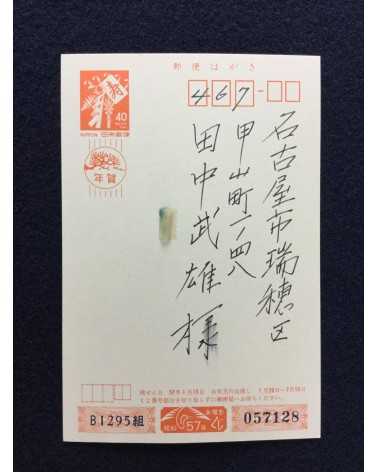 郵便はがき
40
NIPPON 日本郵便
年賀
467-
名古屋市瑞穂区
甲山町一ノ四八
田中武雄様
B1295組
お年玉
昭和57年
くじ
057128